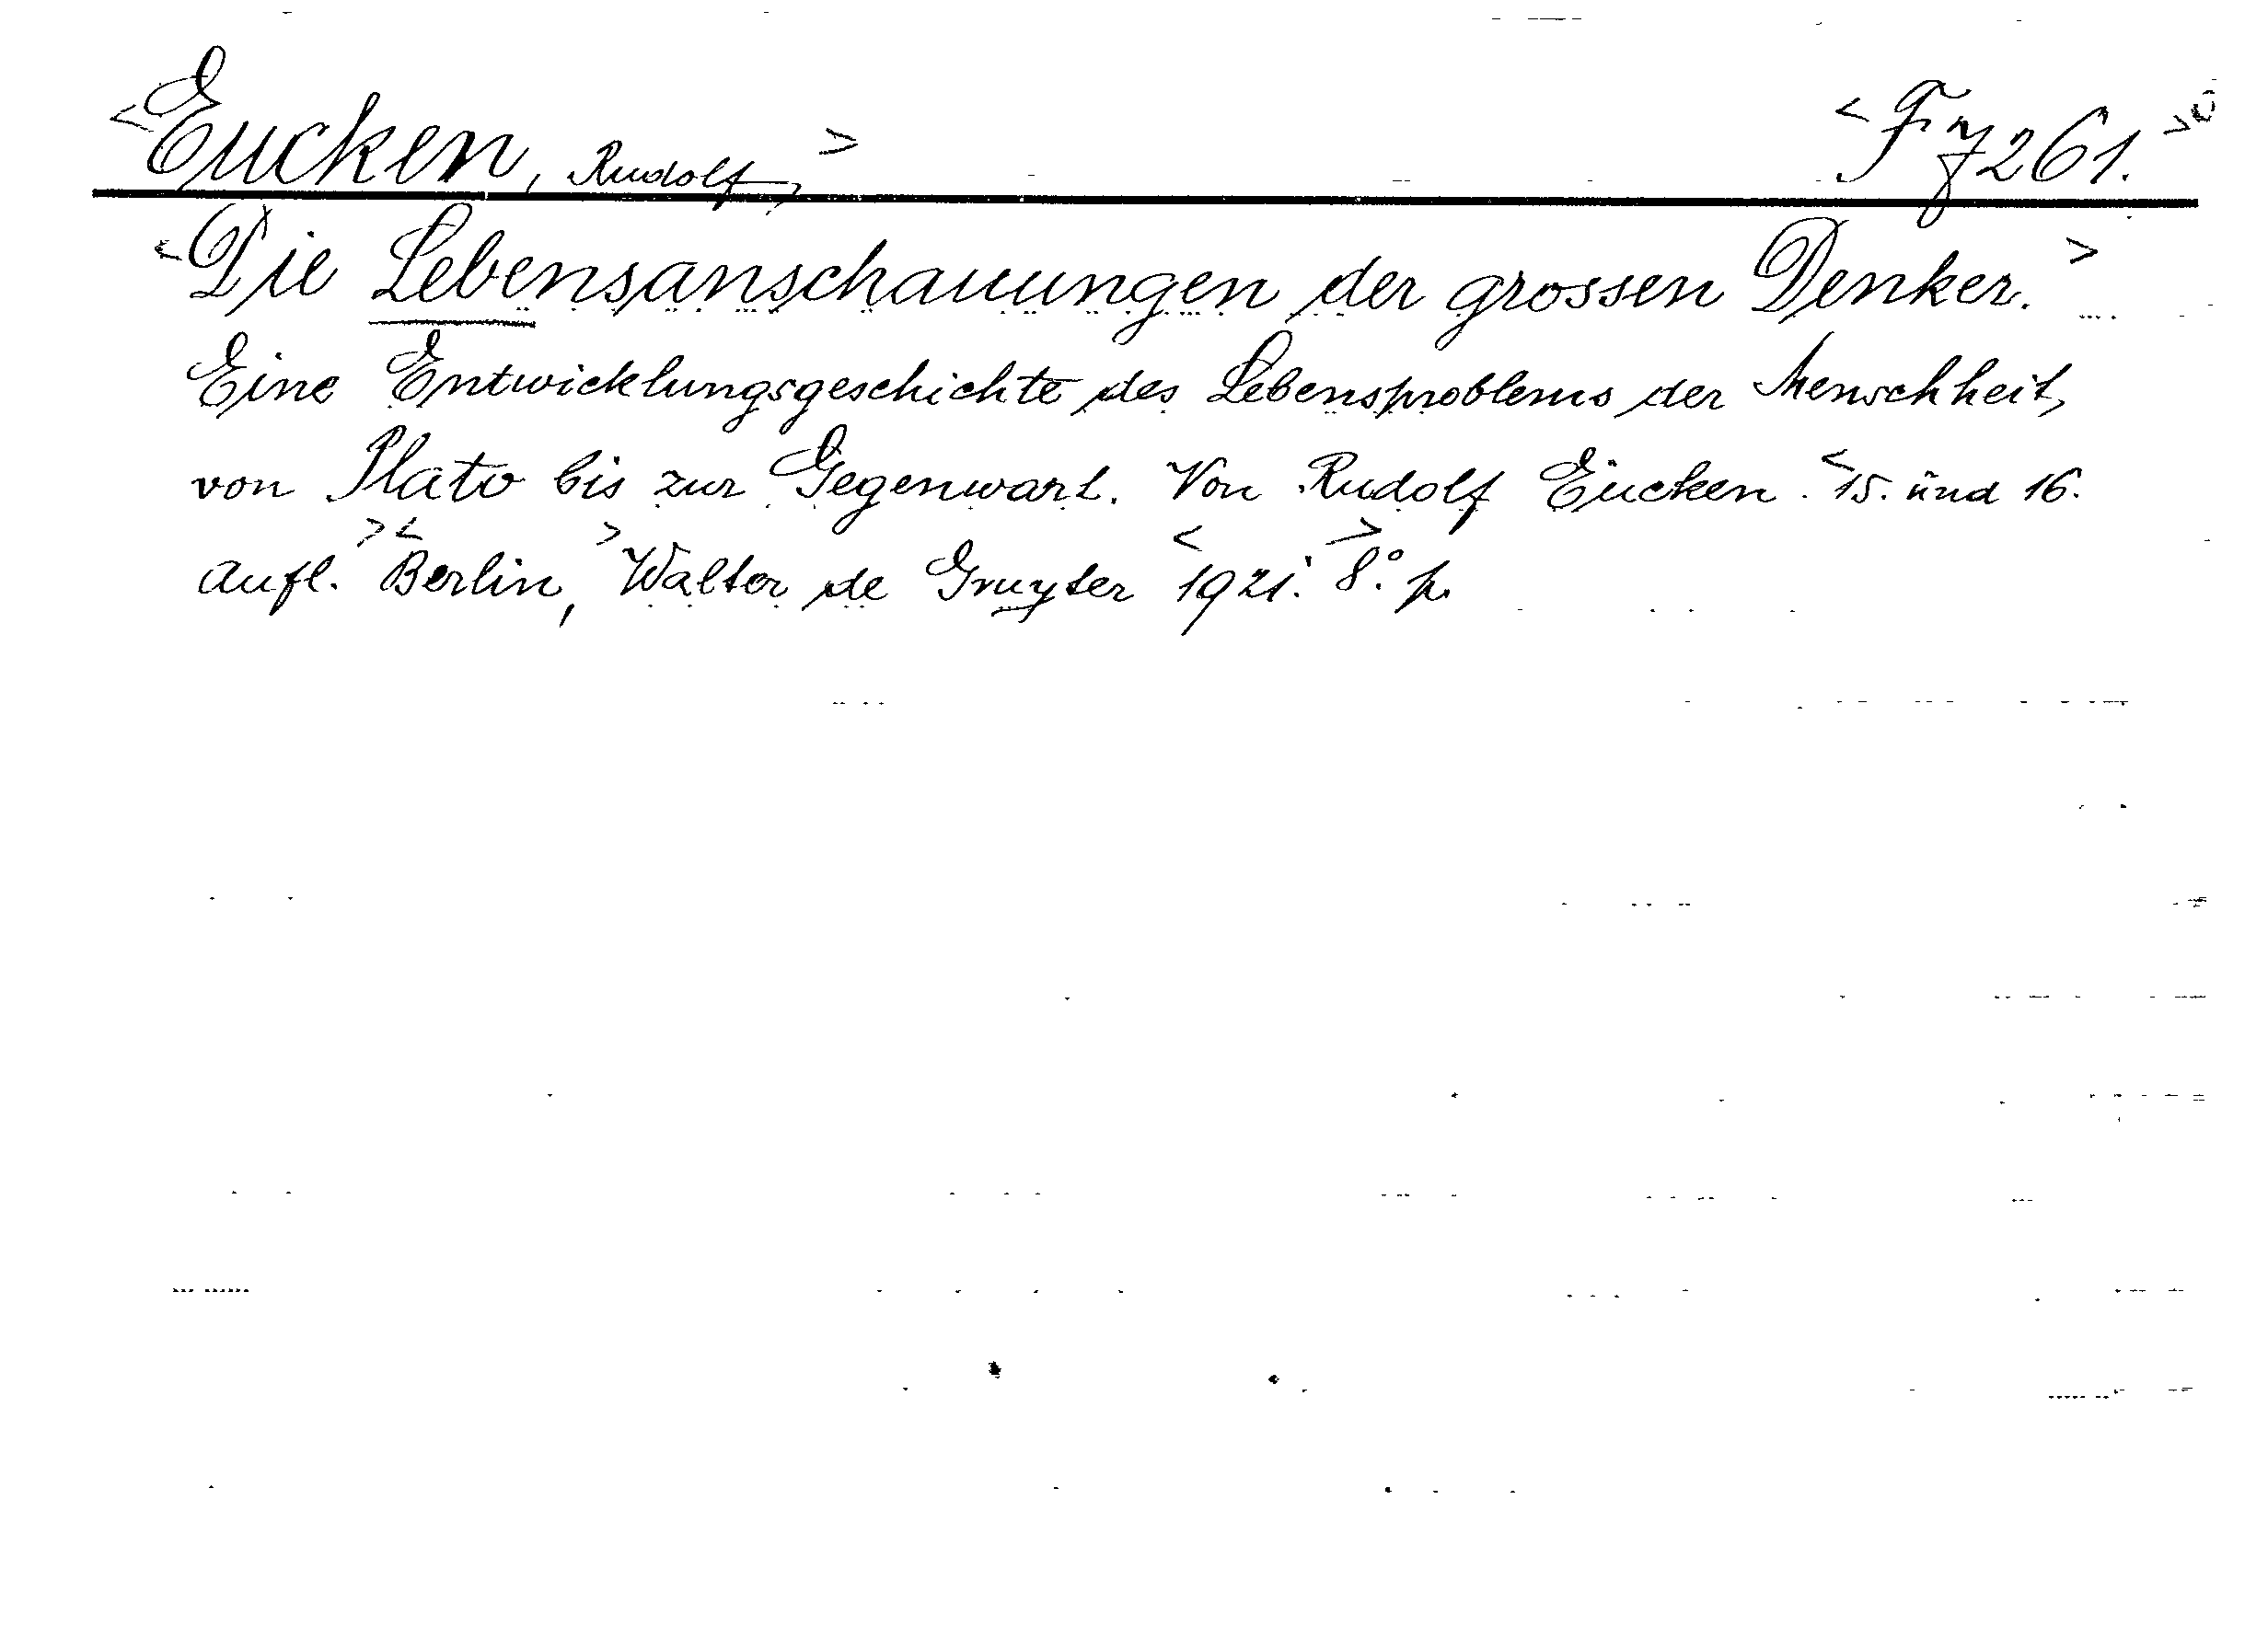 <Eucken, Rudolf,> <F 7261.>
<Die Lebensanschauungen der grossen Denker.>
Eine Entwicklungsgeschichte des Lebensproblems der Menschheit,
von Plato bis zur Gegenwart. Von Rudolf Eucken. <15. und 16.
Aufl.> <Berlin,> Walter de Gruyter <1921.> 8°. p.